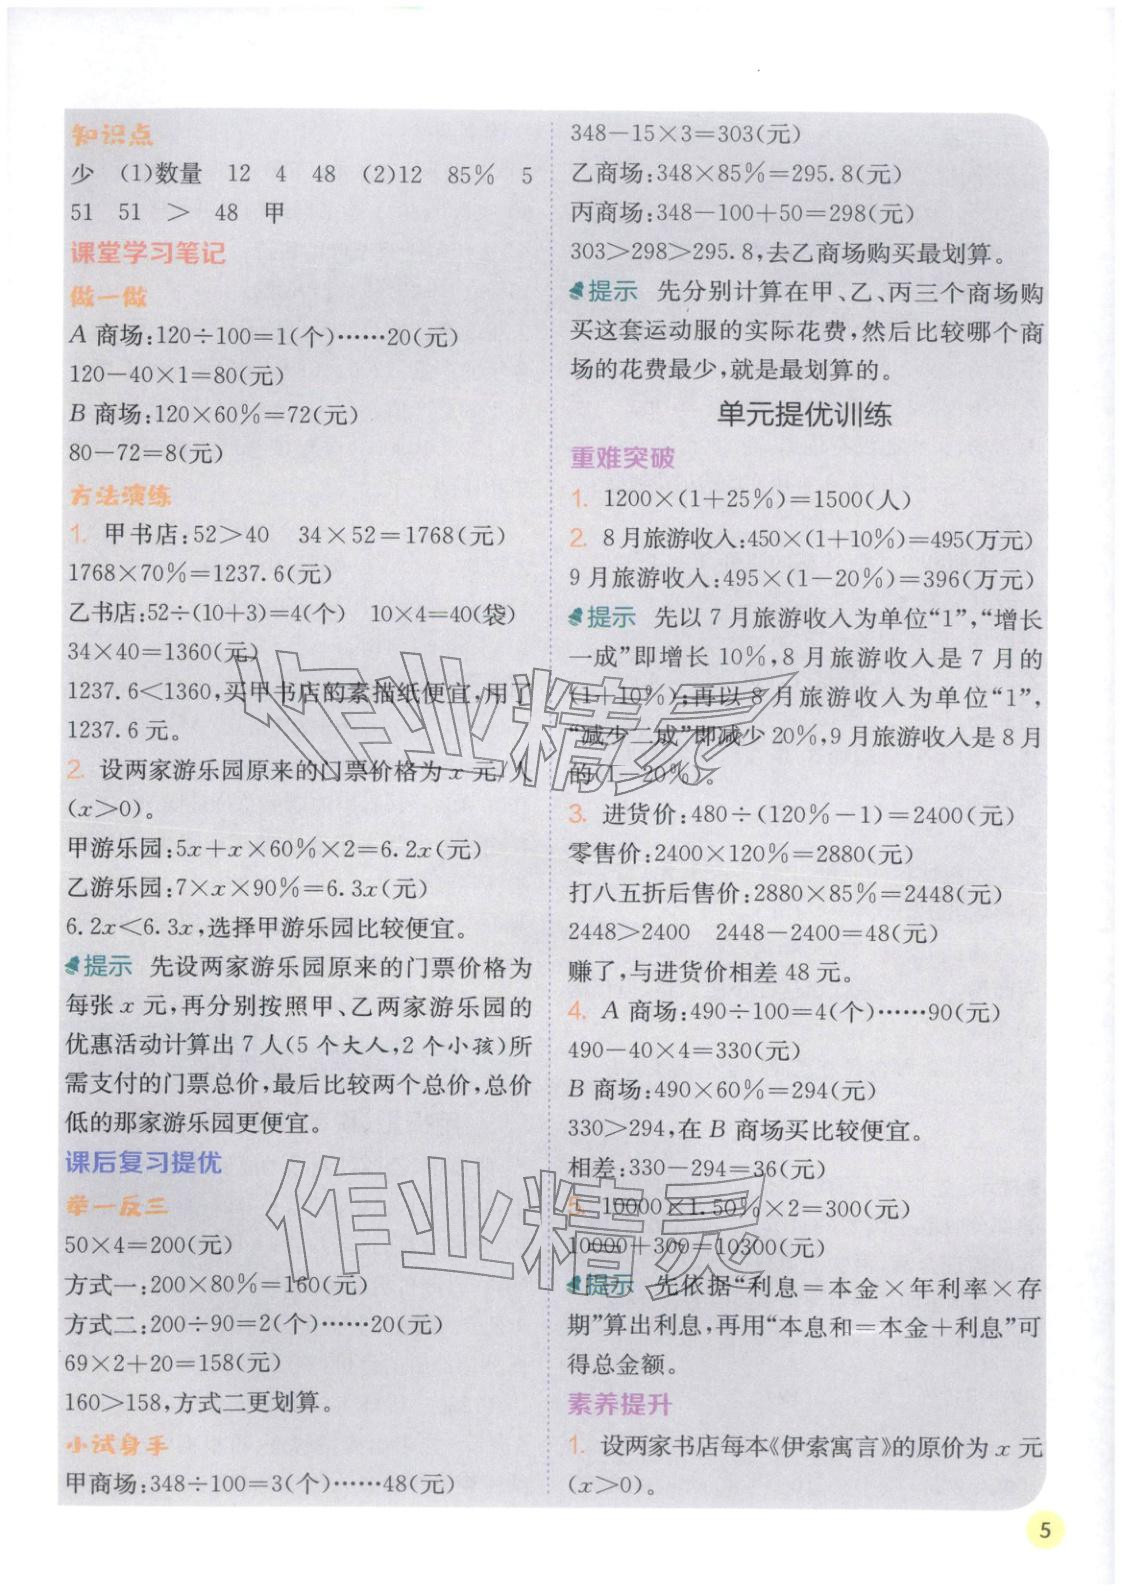 知识点
少 (1)数量 12 4 48 (2)12 85% 5
51 51 > 48 甲
课堂学习笔记
做一做
A 商场:120÷100=1(个)……20(元)
120-40×1=80(元)
B 商场:120×60%=72(元)
80-72=8(元)
方法演练
1. 甲书店:52>40 34×52=1768(元)
1768×70%=1237.6(元)
乙书店:52÷(10+3)=4(个) 10×4=40(袋)
34×40=1360(元)
1237.6<1360,买甲书店的素描纸便宜,用了
1237.6 元。
2. 设两家游乐园原来的门票价格为 x 元/人
(x>0)。
甲游乐园:5x+x×60%×2=6.2x(元)
乙游乐园:7×x×90%=6.3x(元)
6.2x<6.3x,选择甲游乐园比较便宜。
提示 先设两家游乐园原来的门票价格为
每张 x 元,再分别按照甲、乙两家游乐园的
优惠活动计算出 7 人(5 个大人,2 个小孩)所
需支付的门票总价,最后比较两个总价,总价
低的那家游乐园更便宜。
课后复习提优
举一反三
50×4=200(元)
方式一:200×80%=160(元)
方式二:200÷90=2(个)……20(元)
69×2+20=158(元)
160>158,方式二更划算。
小试身手
甲商场:348÷100=3(个)……48(元)
348-15×3=303(元)
乙商场:348×85%=295.8(元)
丙商场:348-100+50=298(元)
303>298>295.8,去乙商场购买最划算。
提示 先分别计算在甲、乙、丙三个商场购
买这套运动服的实际花费,然后比较哪个商
场的花费最少,就是最划算的。
单元提优训练
重难突破
1. 1200×(1+25%)=1500(人)
2. 8 月旅游收入:450×(1+10%)=495(万元)
9 月旅游收入:495×(1-20%)=396(万元)
提示 先以 7 月旅游收入为单位“1”,“增长
一成”即增长 10%,8 月旅游收入是 7 月的
(1+10%);再以 8 月旅游收入为单位“1”,
“减少二成”即减少 20%,9 月旅游收入是 8 月
的(1-20%)。
3. 进货价:480÷(120%-1)=2400(元)
零售价:2400×120%=2880(元)
打八五折后售价:2880×85%=2448(元)
2448>2400 2448-2400=48(元)
赚了,与进货价相差 48 元。
4. A 商场:490÷100=4(个)……90(元)
490-40×4=330(元)
B 商场:490×60%=294(元)
330>294,在 B 商场买比较便宜。
相差:330-294=36(元)
5. 10000×1.50%×2=300(元)
10000+300=10300(元)
提示 先依据“利息=本金×年利率×存
期”算出利息,再用“本息和=本金+利息”可
得总金额。
素养提升
1. 设两家书店每本《伊索寓言》的原价为 x 元
(x>0)。
5
作业精灵
作业精灵